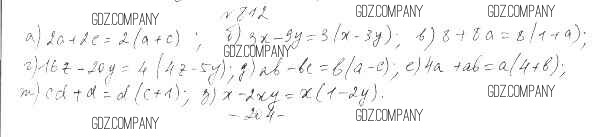 GDZ.COMPANY № 812 GDZ.COMPANY
а) 2a+2c=2(a+c); б) 3x-9y=3(x-3y); в) 8+8a=8(1+a);
GDZ.COMPANY
г) 16z-20y=4(4z-5y); д) ab-bc=b(a-c); е) 4a+ab=a(4+b);
ж) cd+d=d(c+1); з) x-2xy=x(1-2y).
GDZ.COMPANY GDZ.COMPANY
GDZ.COMPANY - 204 - GDZ.COMPANY